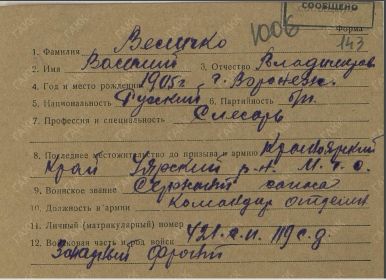 СООБЩЕНО
1006
Форма
143
1. Фамилия Величко
2. Имя Василий 3. Отчество Владимиров
4. Год и место рождения 1905 г. г. Воронеж.
5. Национальность Русский 6. Партийность б/п.
7. Профессия и специальность Слесарь
8. Последнее местожительство до призыва в армию Красноярский
Край Уярский р-н. М. г. о.
9. Воинское звание Сержант запаса
10. Должность в армии Командир отделен
11. Личный (матрикулярный) номер
12. Воинская часть и род войск 421 с.п. 119 с.д.
Западный фронт